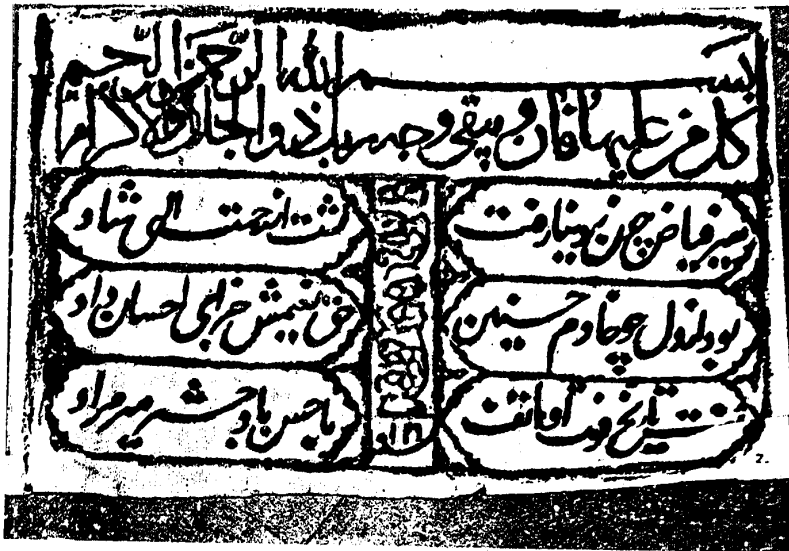 بسم الله الرحمن الرحیم
كل من علیها فان ویبقی وجه ربك ذو الجلال والاكرام
میر فیاض چون زدنیا رفت
گشت از رحمت الهی شاد
بود از دل چو خادم حسنین
حق نعیمش جزای احسان داد
تاریخ فوت او هاتف
با حسن باد حشر میر مراد